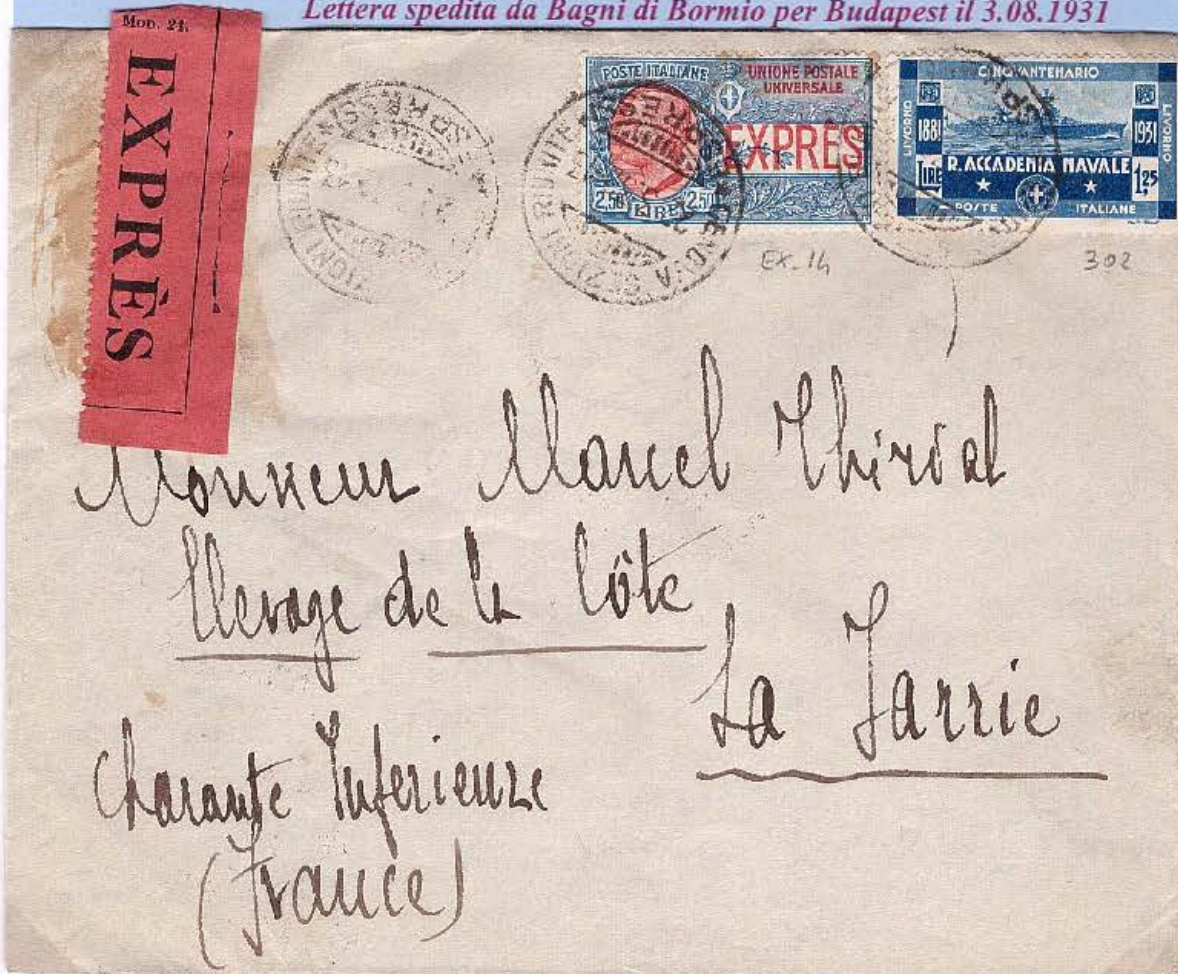 Lettera spedita da Bagni di Bormio per Budapest il 3.08.1931
Mod. 24.
EXPRÈS
POSTE ITALIANE
UNIONE POSTALE
UNIVERSALE
EXPRES
2,50 LIRE 2,50
CINQVANTENARIO
LIVORNO
1881
1931
LIVORNO
R. ACCADEMIA NAVALE
LIRE
1,25
POSTE ITALIANE
GENOVA
EX. 14
302
Monsieur Marcel Thiroal
Elevage de la Côte
La Jarrie
Charante Inferieure
(France)